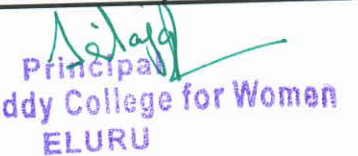 Principal
ddy College for Women
ELURU